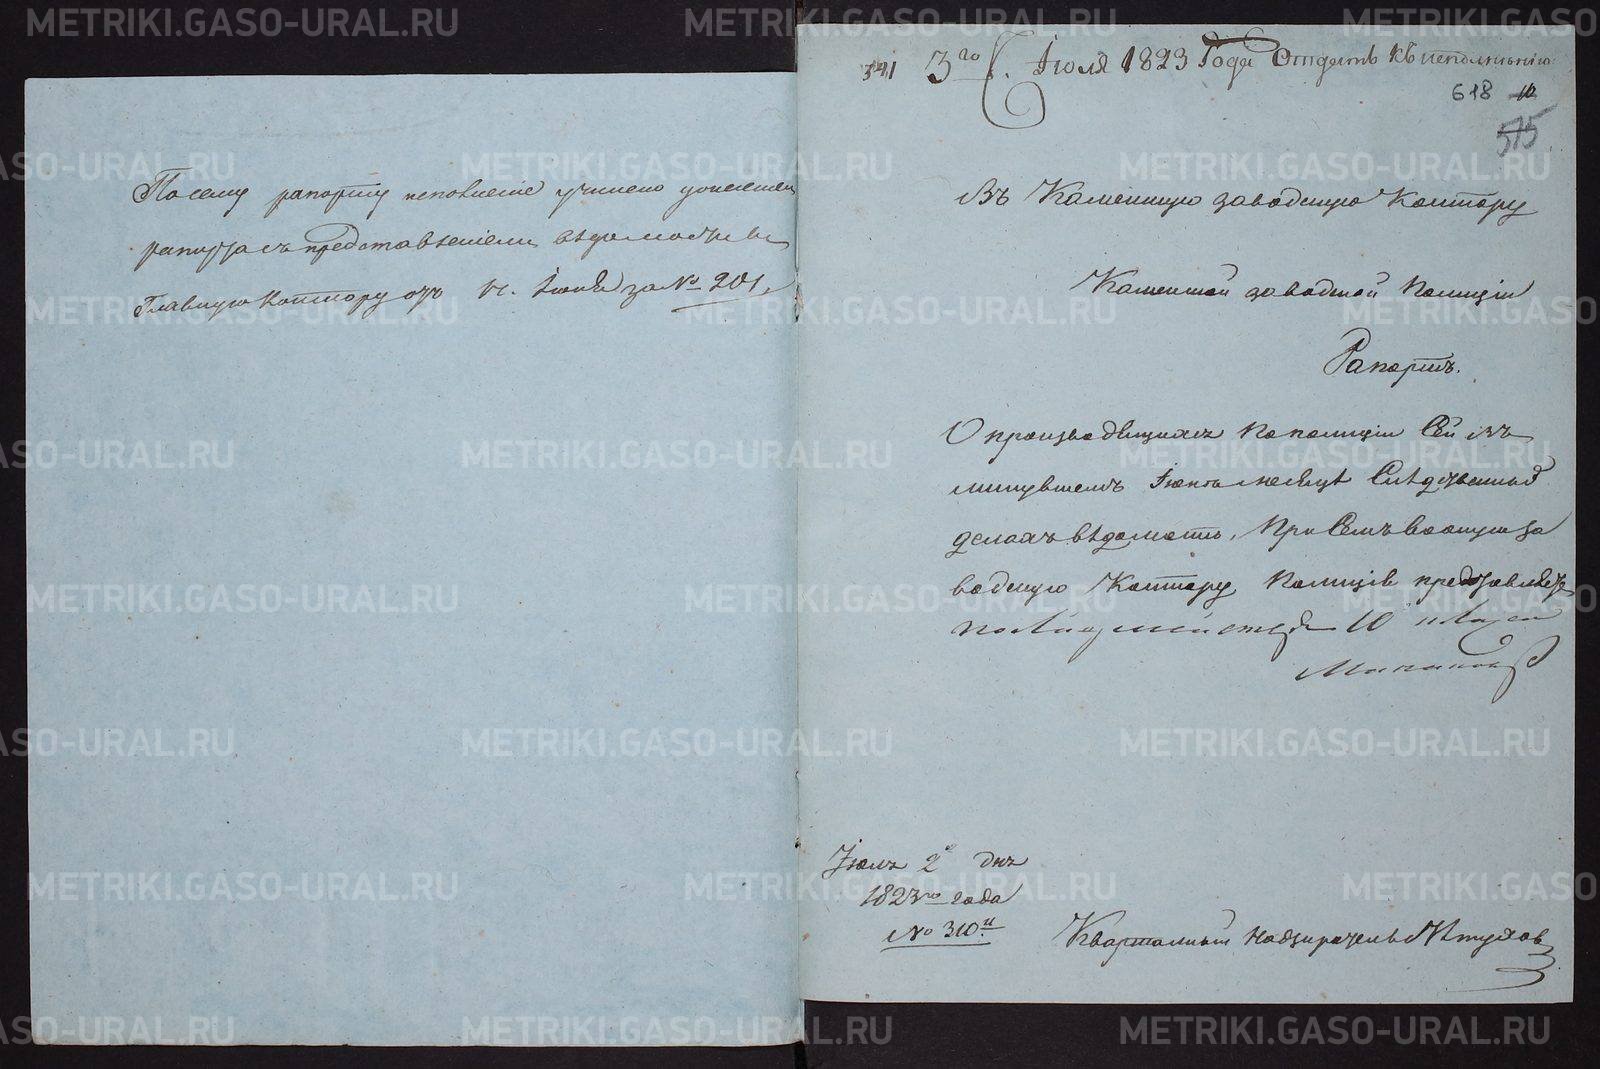 По сему рапорту исполнение учинено донесением
рапорта съ представлениемъ ведомости въ
Главную Контору отъ Июля за № 201,
341 3го Июля 1823 Года Отдать къ исполнению
618 10
515
Въ Каменную заводскую Контору
Каменной заводской Полиции
Рапортъ.
О производящихся по полиции Сей въ
минувшемъ Июне месяце Следственныхъ
делахъ ведомость, При Семъ во оную за
водскую Контору Полиция представляетъ
Июля 2 дня
1823го года
№ 310й
Квартальный Надзиратель
METRIKI.GASO-URAL.RU